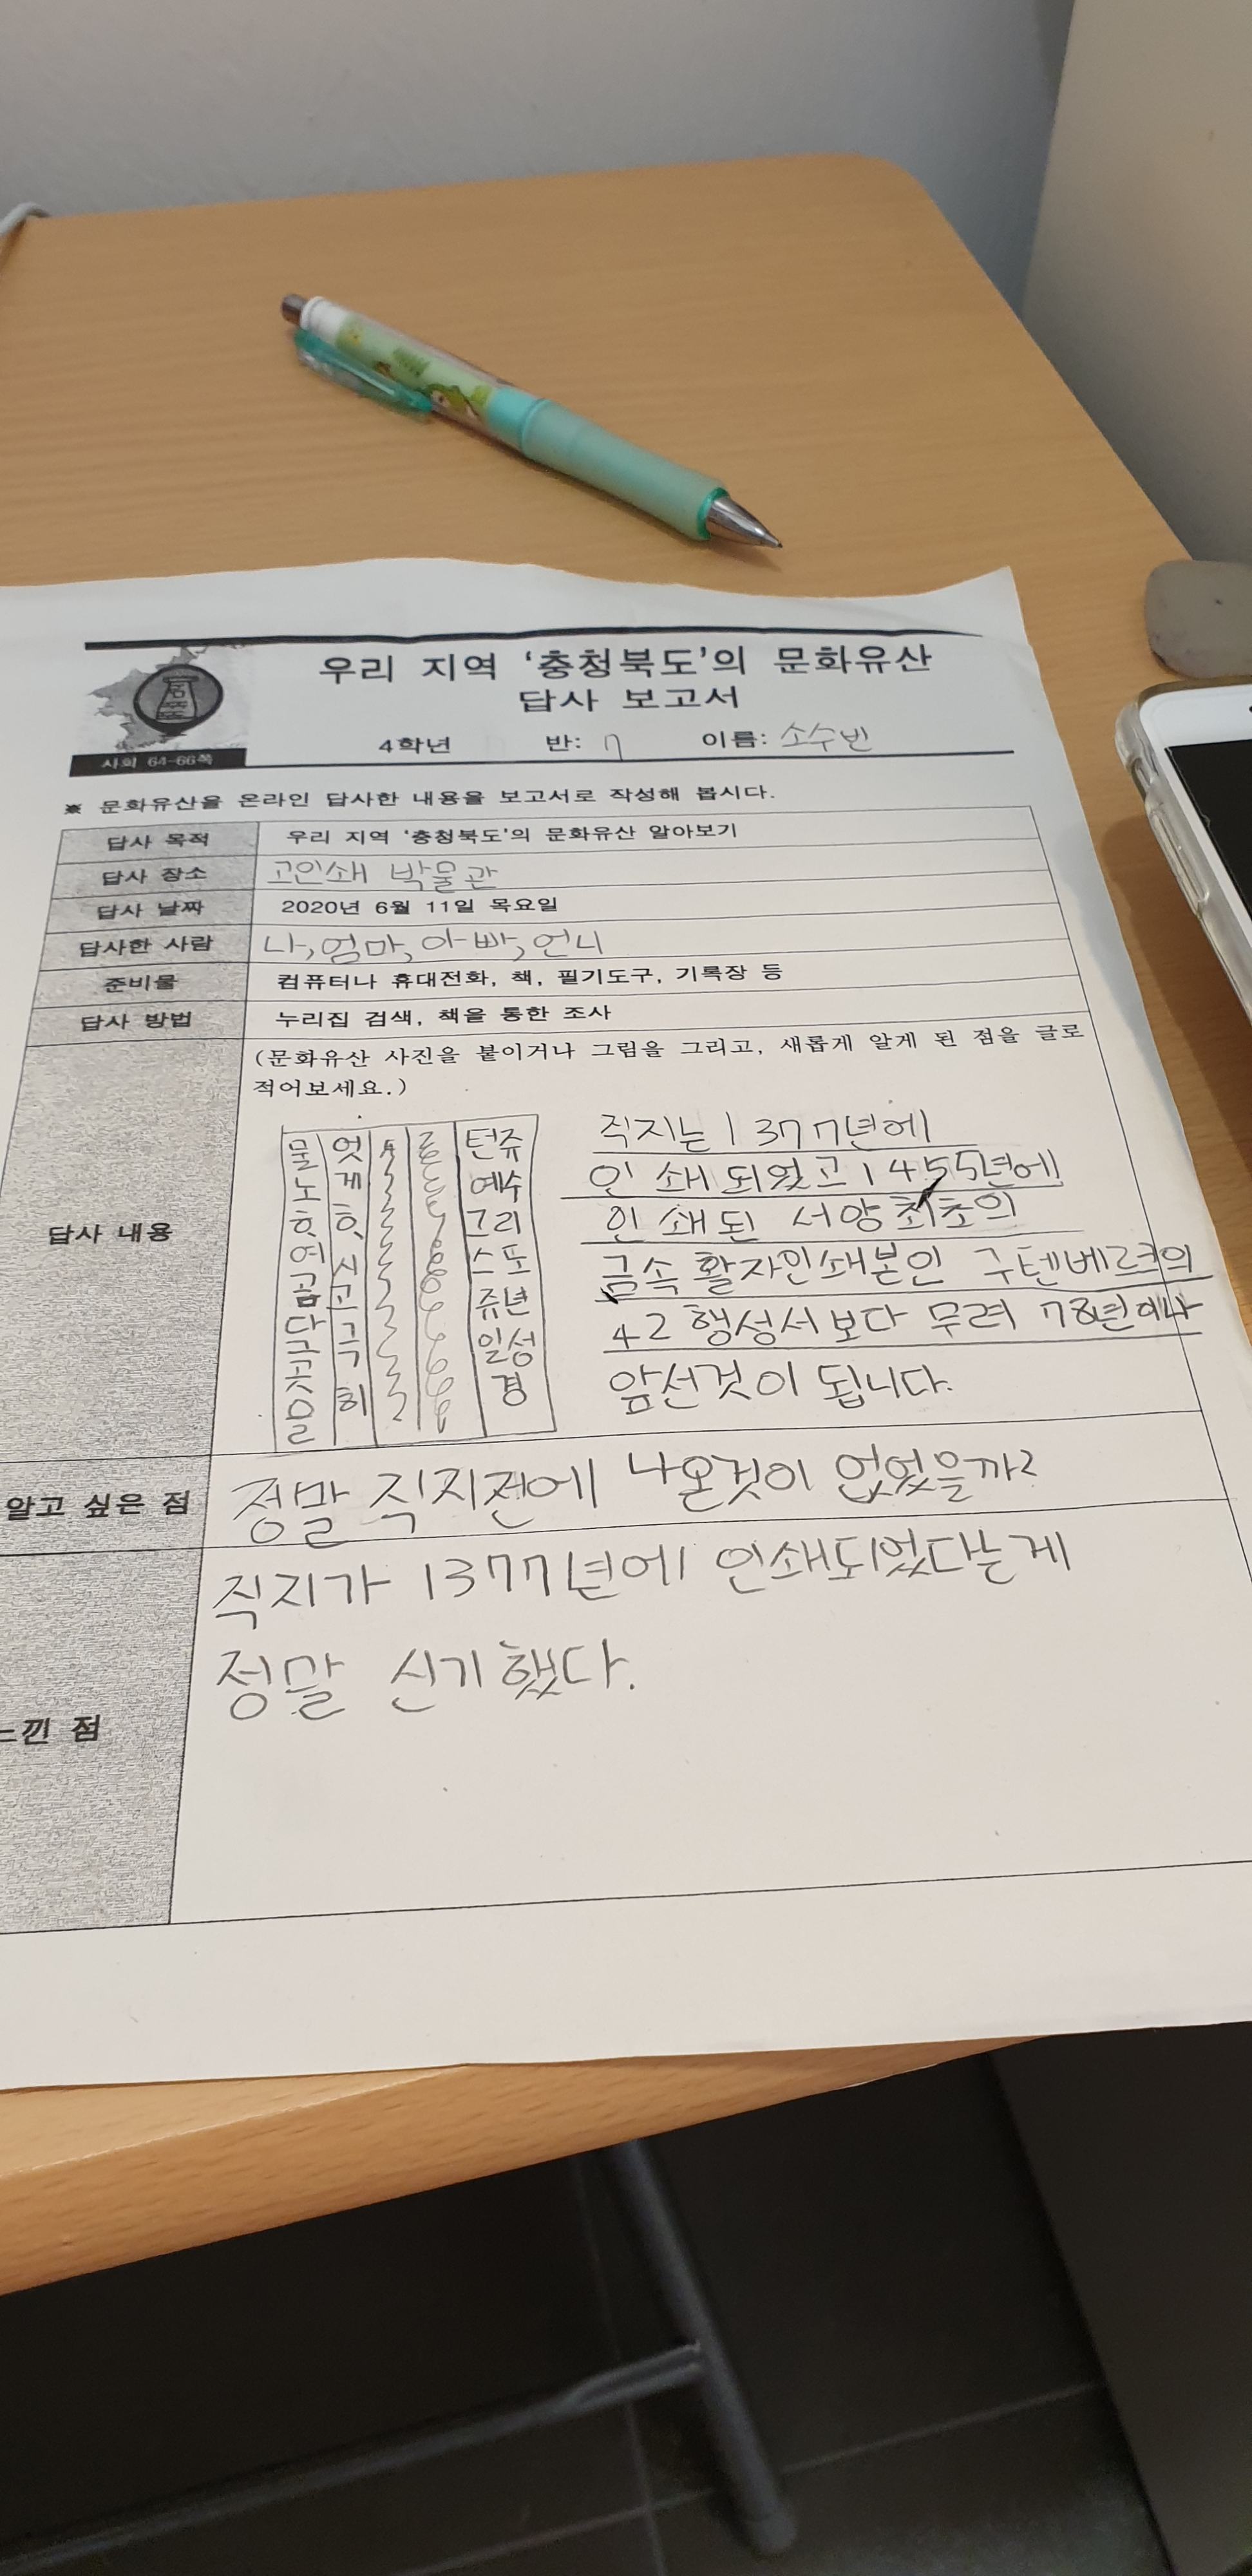 우리 지역 '충청북도'의 문화유산
답사 보고서
사회 64-66쪽
4학년 반: 7 이름: 소수빈
※ 문화유산을 온라인 답사한 내용을 보고서로 작성해 봅시다.
답사 목적 우리 지역 '충청북도'의 문화유산 알아보기
답사 장소 고인쇄 박물관
답사 날짜 2020년 6월 11일 목요일
답사한 사람 나, 엄마, 아빠, 언니
준비물 컴퓨터나 휴대전화, 책, 필기도구, 기록장 등
답사 방법 누리집 검색, 책을 통한 조사
답사 내용
(문화유산 사진을 붙이거나 그림을 그리고, 새롭게 알게 된 점을 글로
적어보세요.)
턴쥬
예수
그리
스도
쥬년
일성
경
직지는 1377년에
인쇄되었고 1455년에
인쇄된 서양최초의
금속활자인쇄본인 구텐베르크의
42행성서보다 무려 78년이나
앞선것이 됩니다.
알고 싶은 점 정말 직지전에 나온것이 없었을까?
느낀 점
직지가 1377년에 인쇄되었다는게
정말 신기했다.